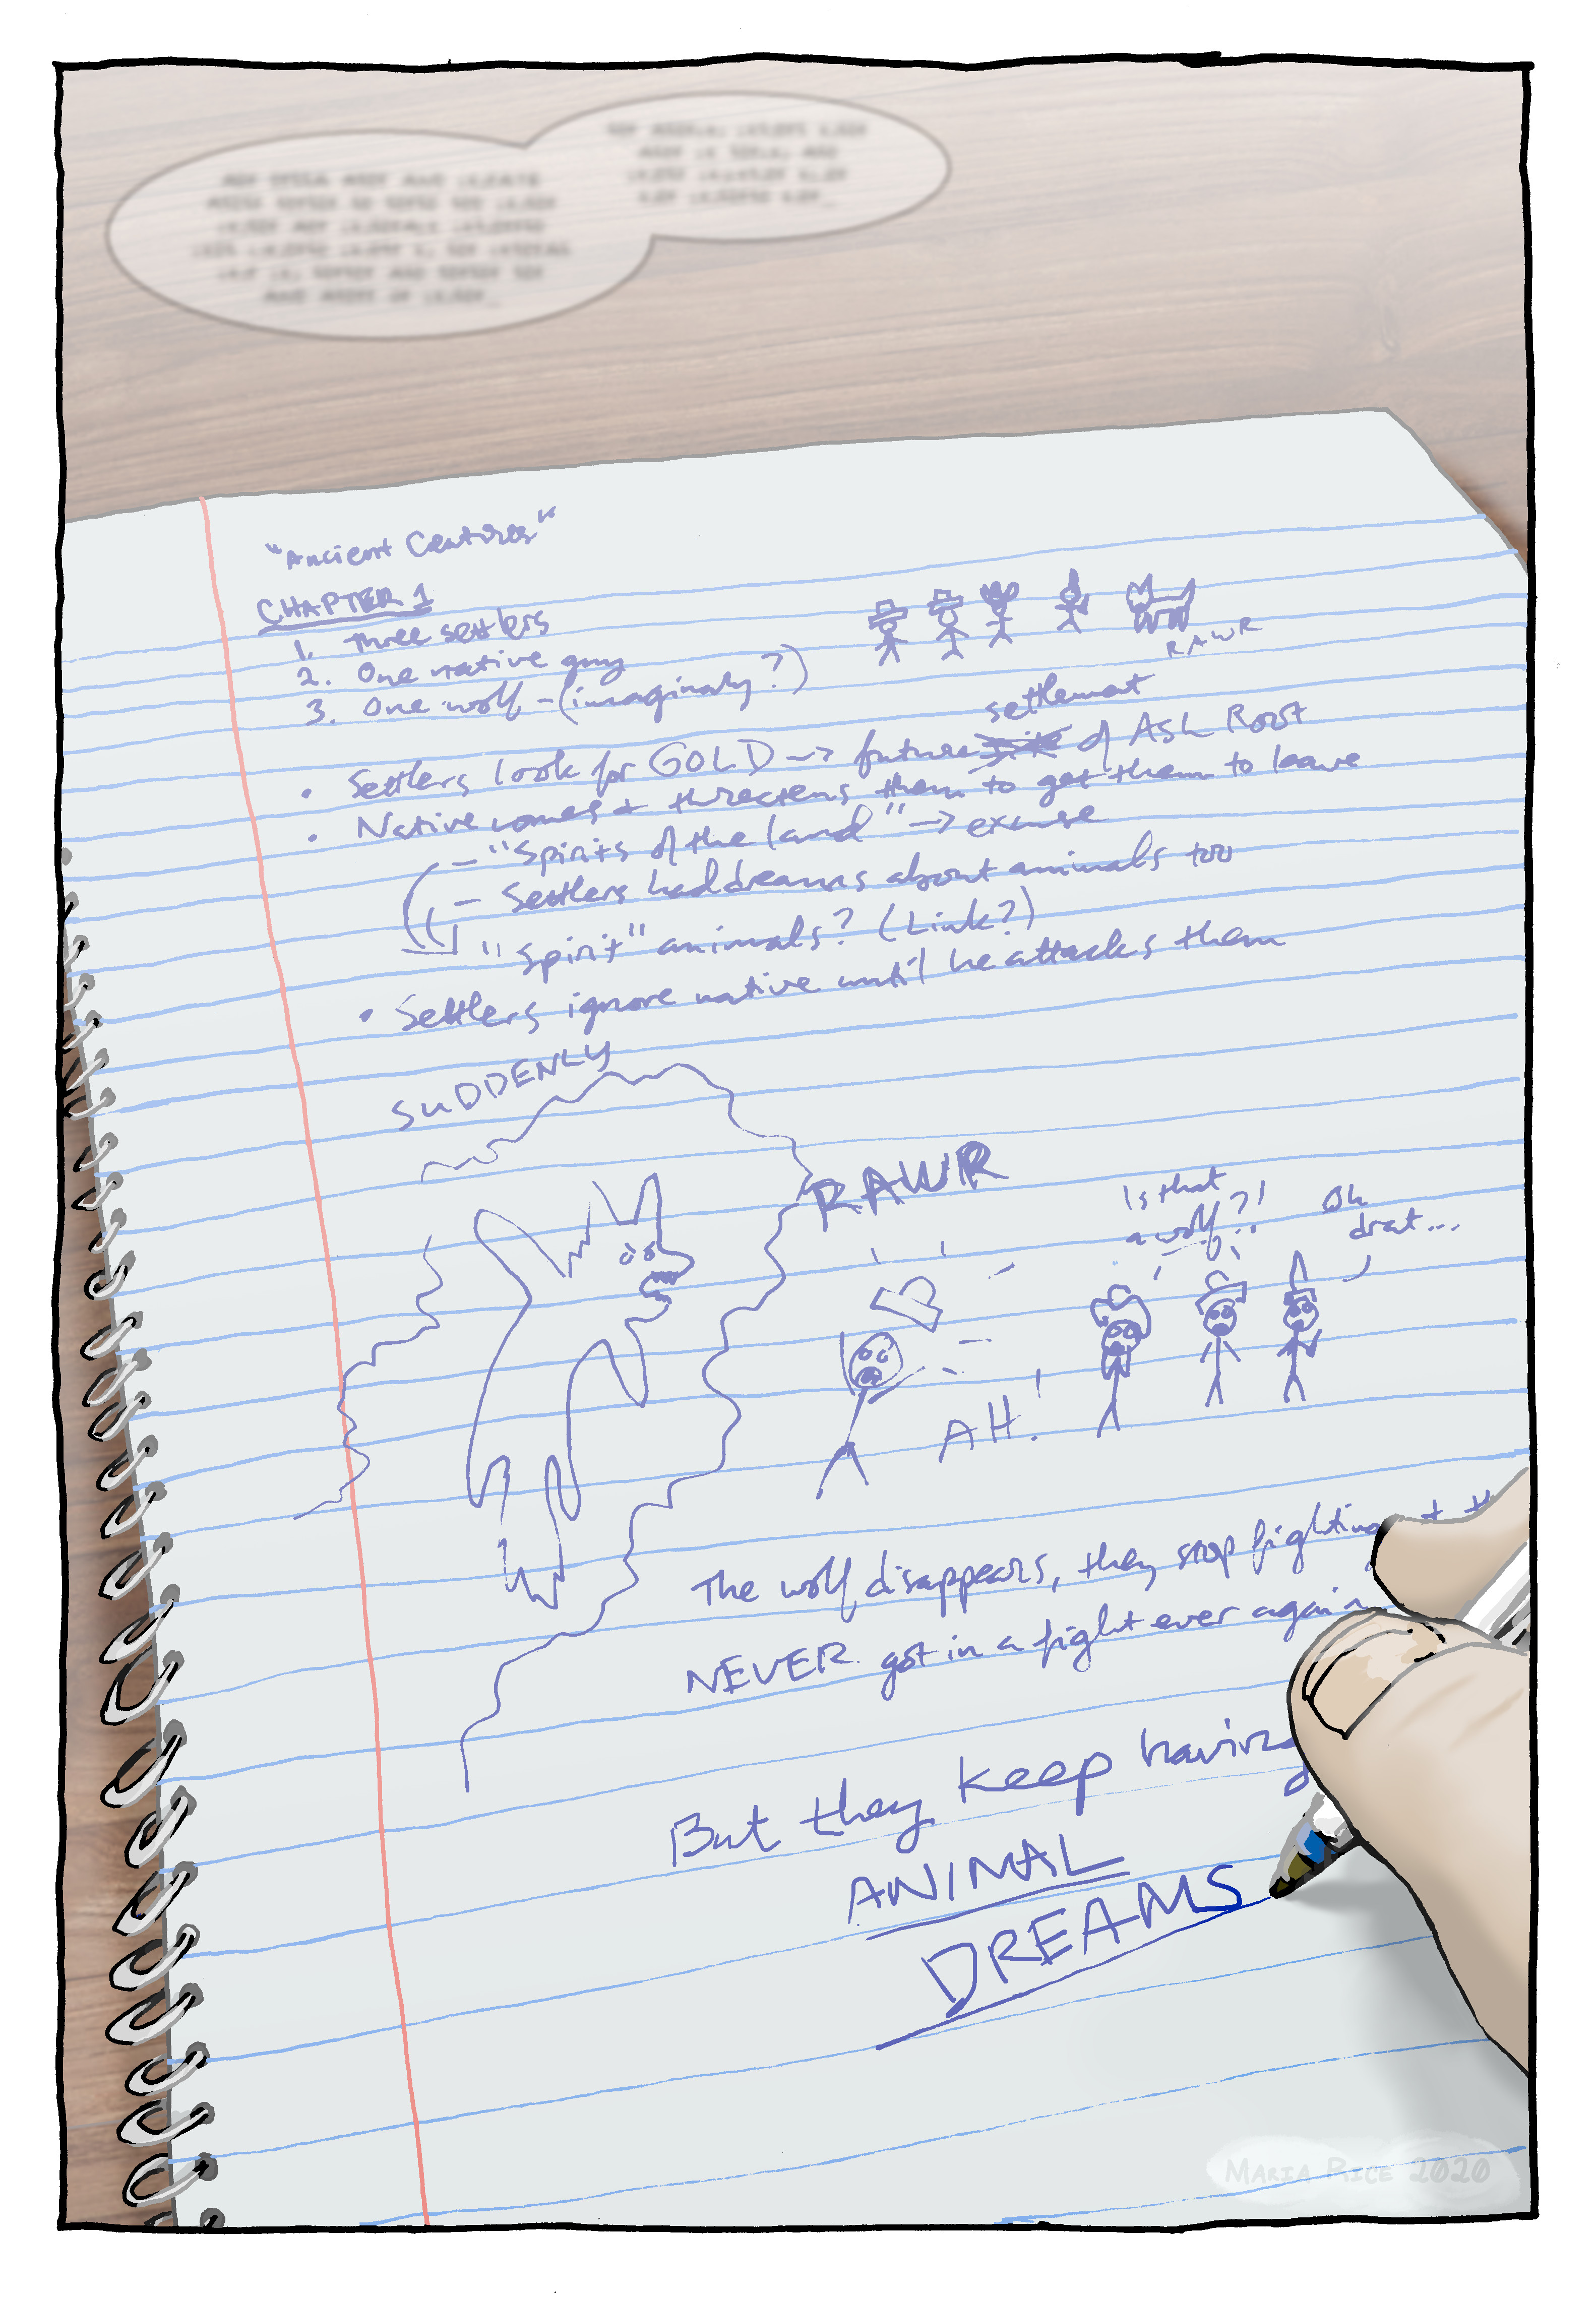 "Ancient Centuries"
CHAPTER 1
1. Three settlers
2. One native guy
3. One wolf - (imaginary?)
RAWR
settlement
• Settlers look for GOLD → future site of Ash Root
• Native comes + threatens them to get them to leave
- "Spirits of the land" → excuse
- Settlers had dreams about animals too
"Spirit" animals? (Link?)
• Settlers ignore native until he attacks them
SUDDENLY
RAWR
Is that
a wolf?!
Oh
drat...
AH!
The wolf disappears, they stop fighting +
NEVER got in a fight ever again
But they keep having
ANIMAL
DREAMS
MARIA RICE 2020